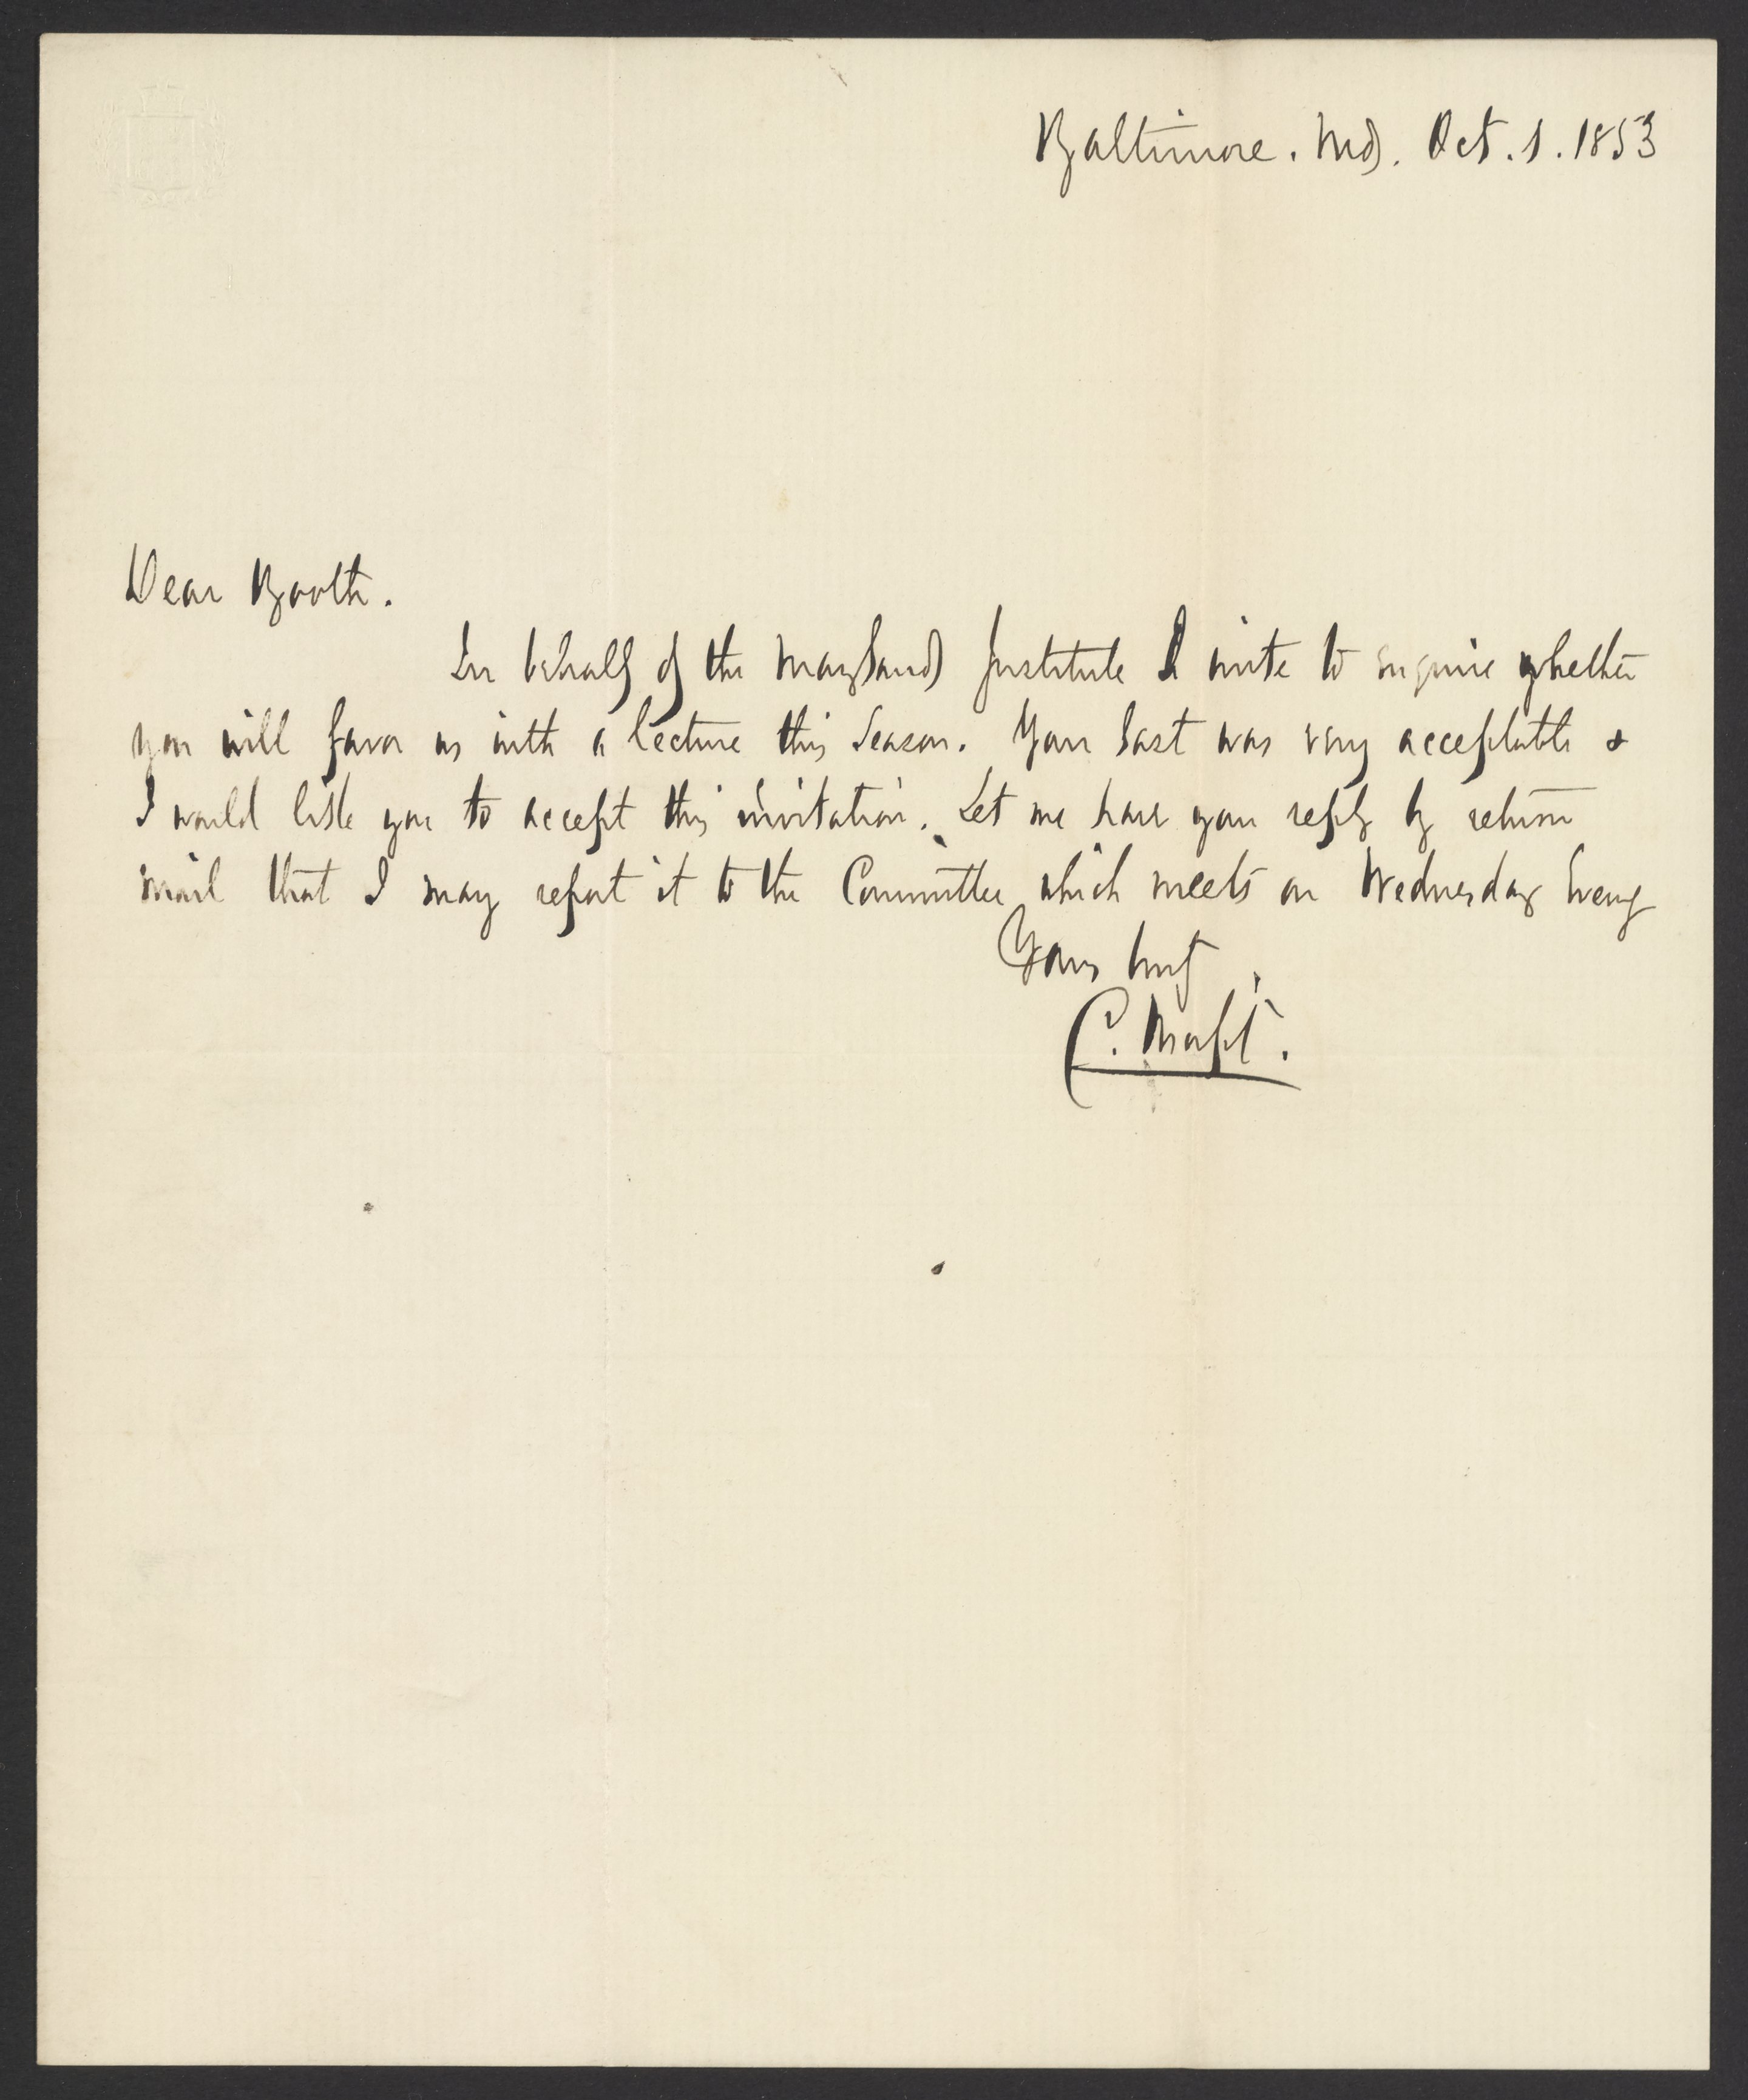 Baltimore. Md. Oct. 1. 1853
Dear Booth.
In behalf of the Maryland Institute I write to enquire whether
you will favor us with a lecture this season. Your last was very acceptable &
I would like you to accept this invitation. Let me have your reply by return
mail that I may report it to the Committee which meets on Wednesday Eveng
Yours truly
C. Morfit.